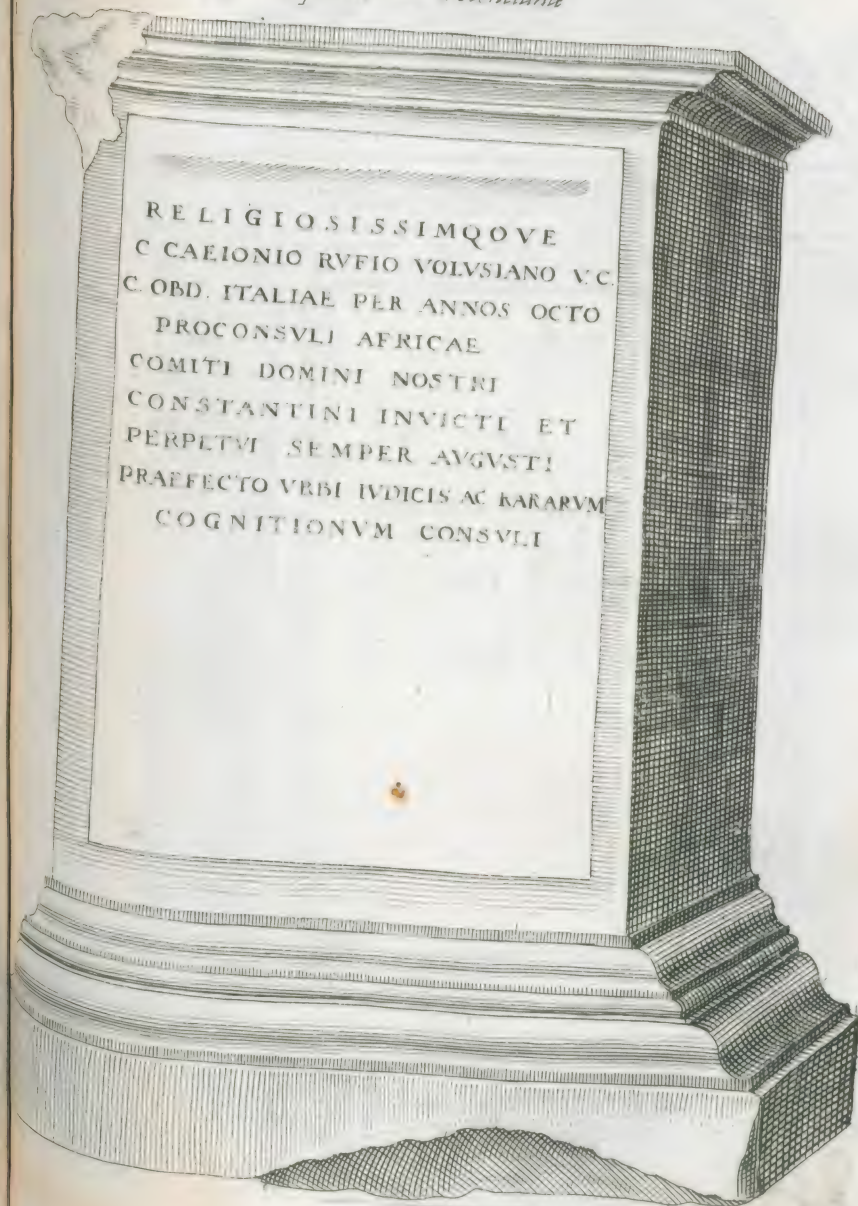 RELIGIOSISSIMQOVE
C CAEIONIO RVFIO VOLVSIANO V.C.
C. OBD. ITALIAE PER ANNOS OCTO
PROCONSVLI AFRICAE
COMITI DOMINI NOSTRI
CONSTANTINI INVICTI ET
PERPETVI SEMPER AVGVSTI
PRAEFECTO VRBI IVDICIS AC RARARVM
COGNITIONVM CONSVLI